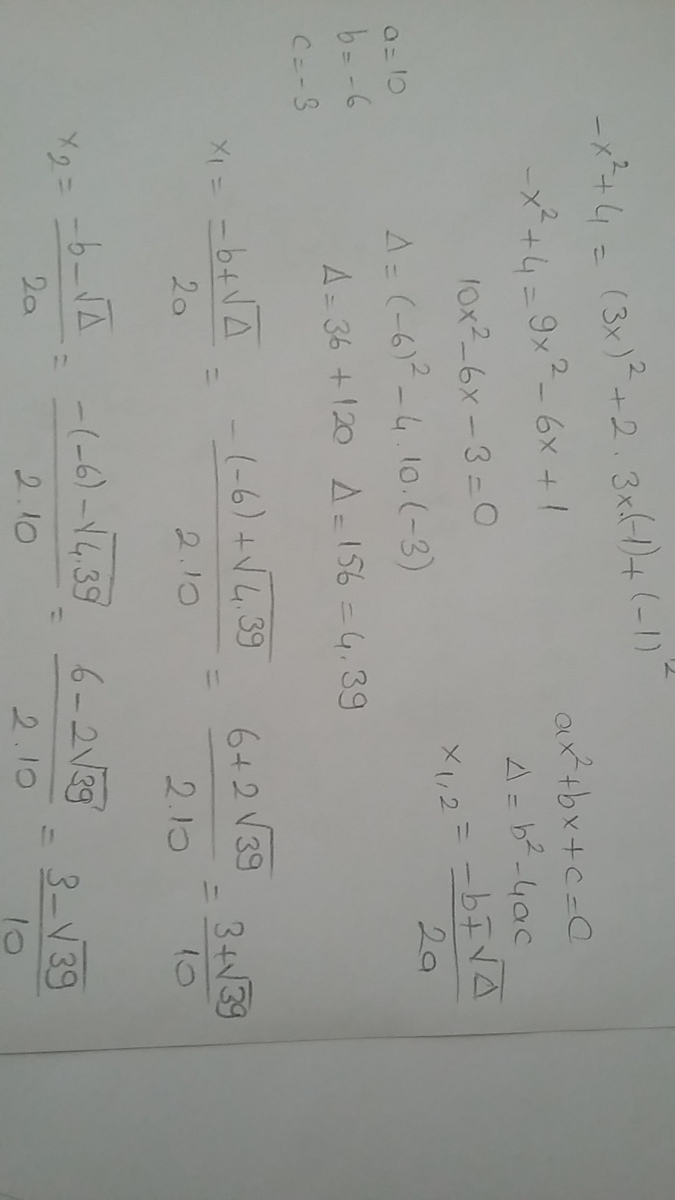 -x² + 4 = (3x)² + 2 · 3x·(-1) + (-1)²
-x² + 4 = 9x² - 6x + 1
10x² - 6x - 3 = 0
ax² + bx + c = 0
Δ = b² - 4ac
x1,2 = (-b ∓ √Δ) / 2a
a = 10
b = -6
c = -3
Δ = (-6)² - 4 · 10 · (-3)
Δ = 36 + 120 Δ = 156 = 4.39
x1 = (-b + √Δ) / 2a = (-(-6) + √4.39) / 2.10 = (6 + 2√39) / 2.10 = (3 + √39) / 10
x2 = (-b - √Δ) / 2a = (-(-6) - √4.39) / 2.10 = (6 - 2√39) / 2.10 = (3 - √39) / 10